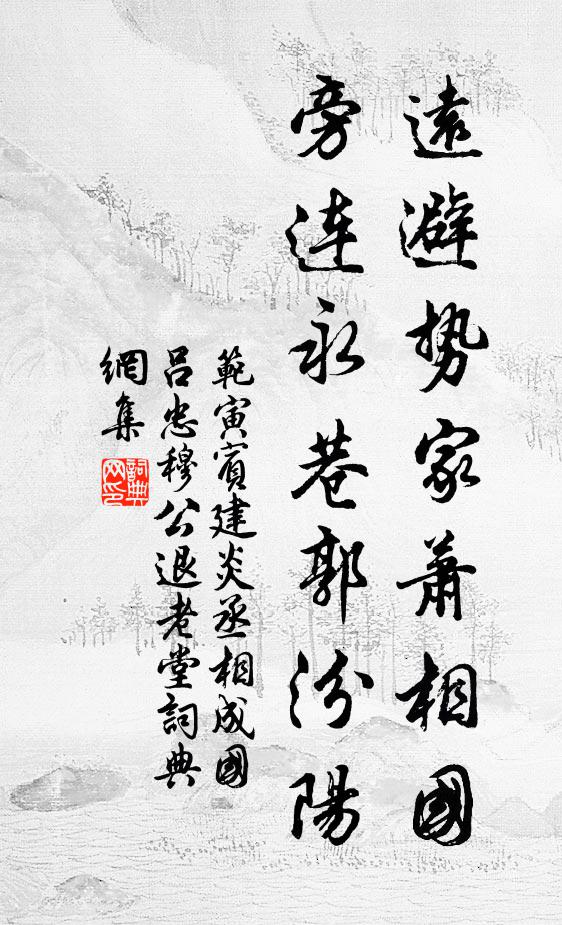 遠避势家萧相國
旁连永巷郭汾陽
範寅賓建炎丞相成國
呂忠穆公退老堂詞典
網集
詞典网印